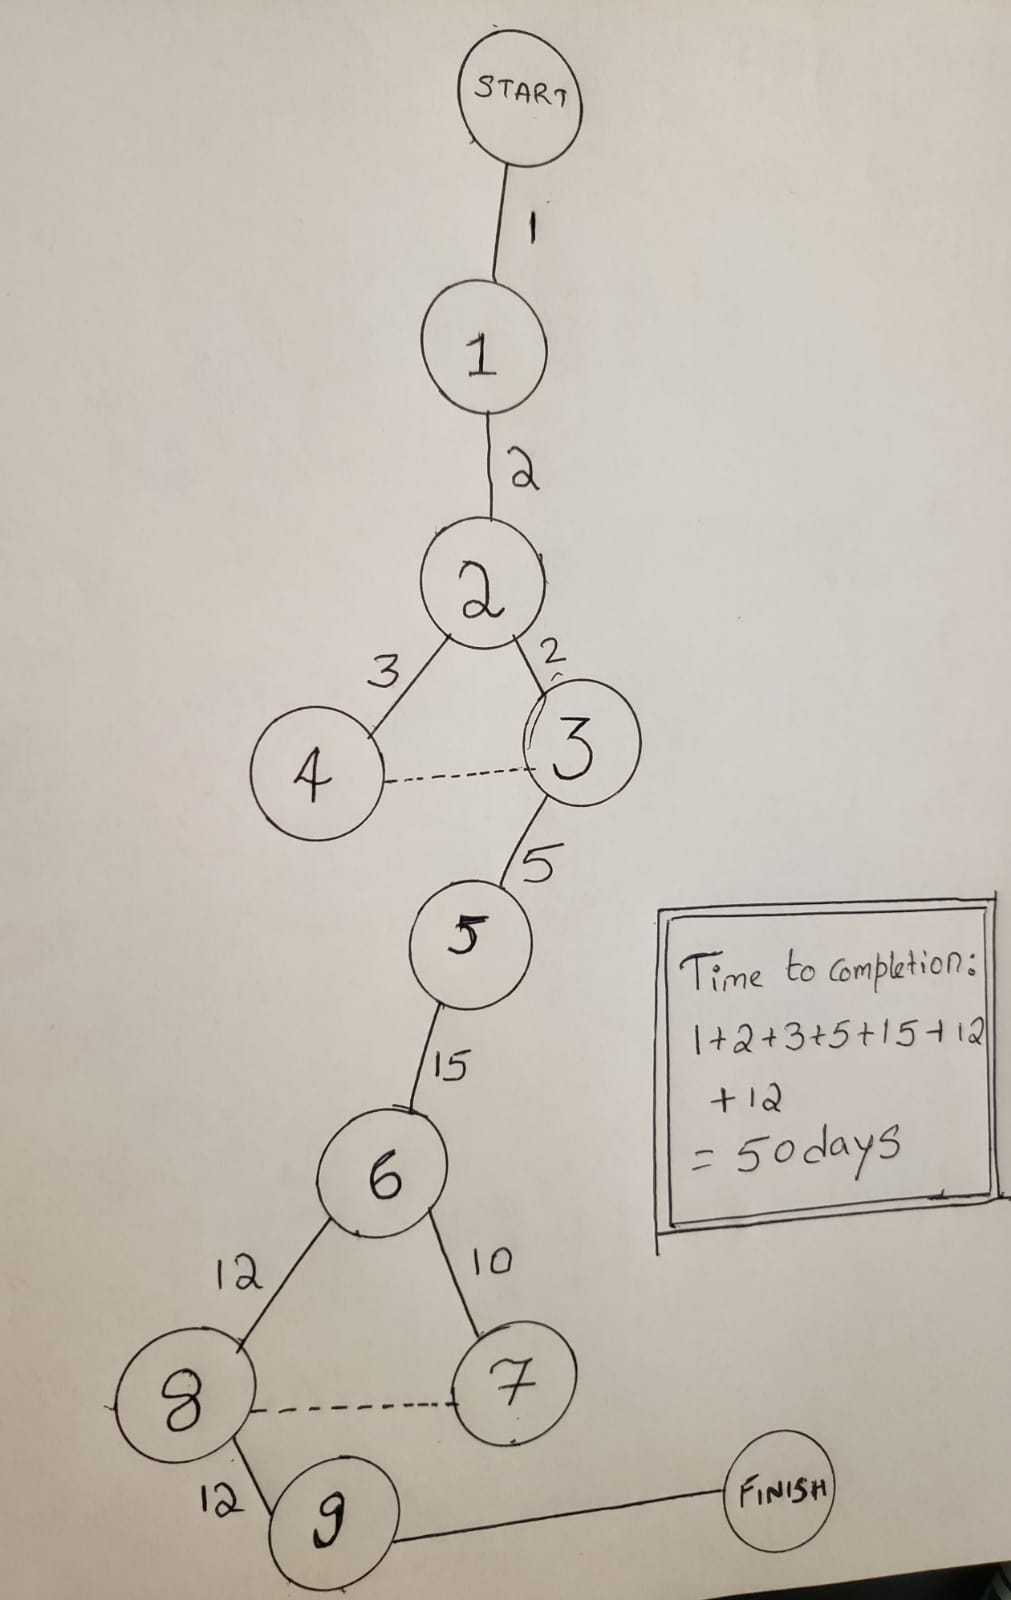 START
1
1
2
2
3
2
4
3
5
5
15
6
12
10
8
7
12
9
FINISH
Time to completion:
1+2+3+5+15+12
+12
= 50days